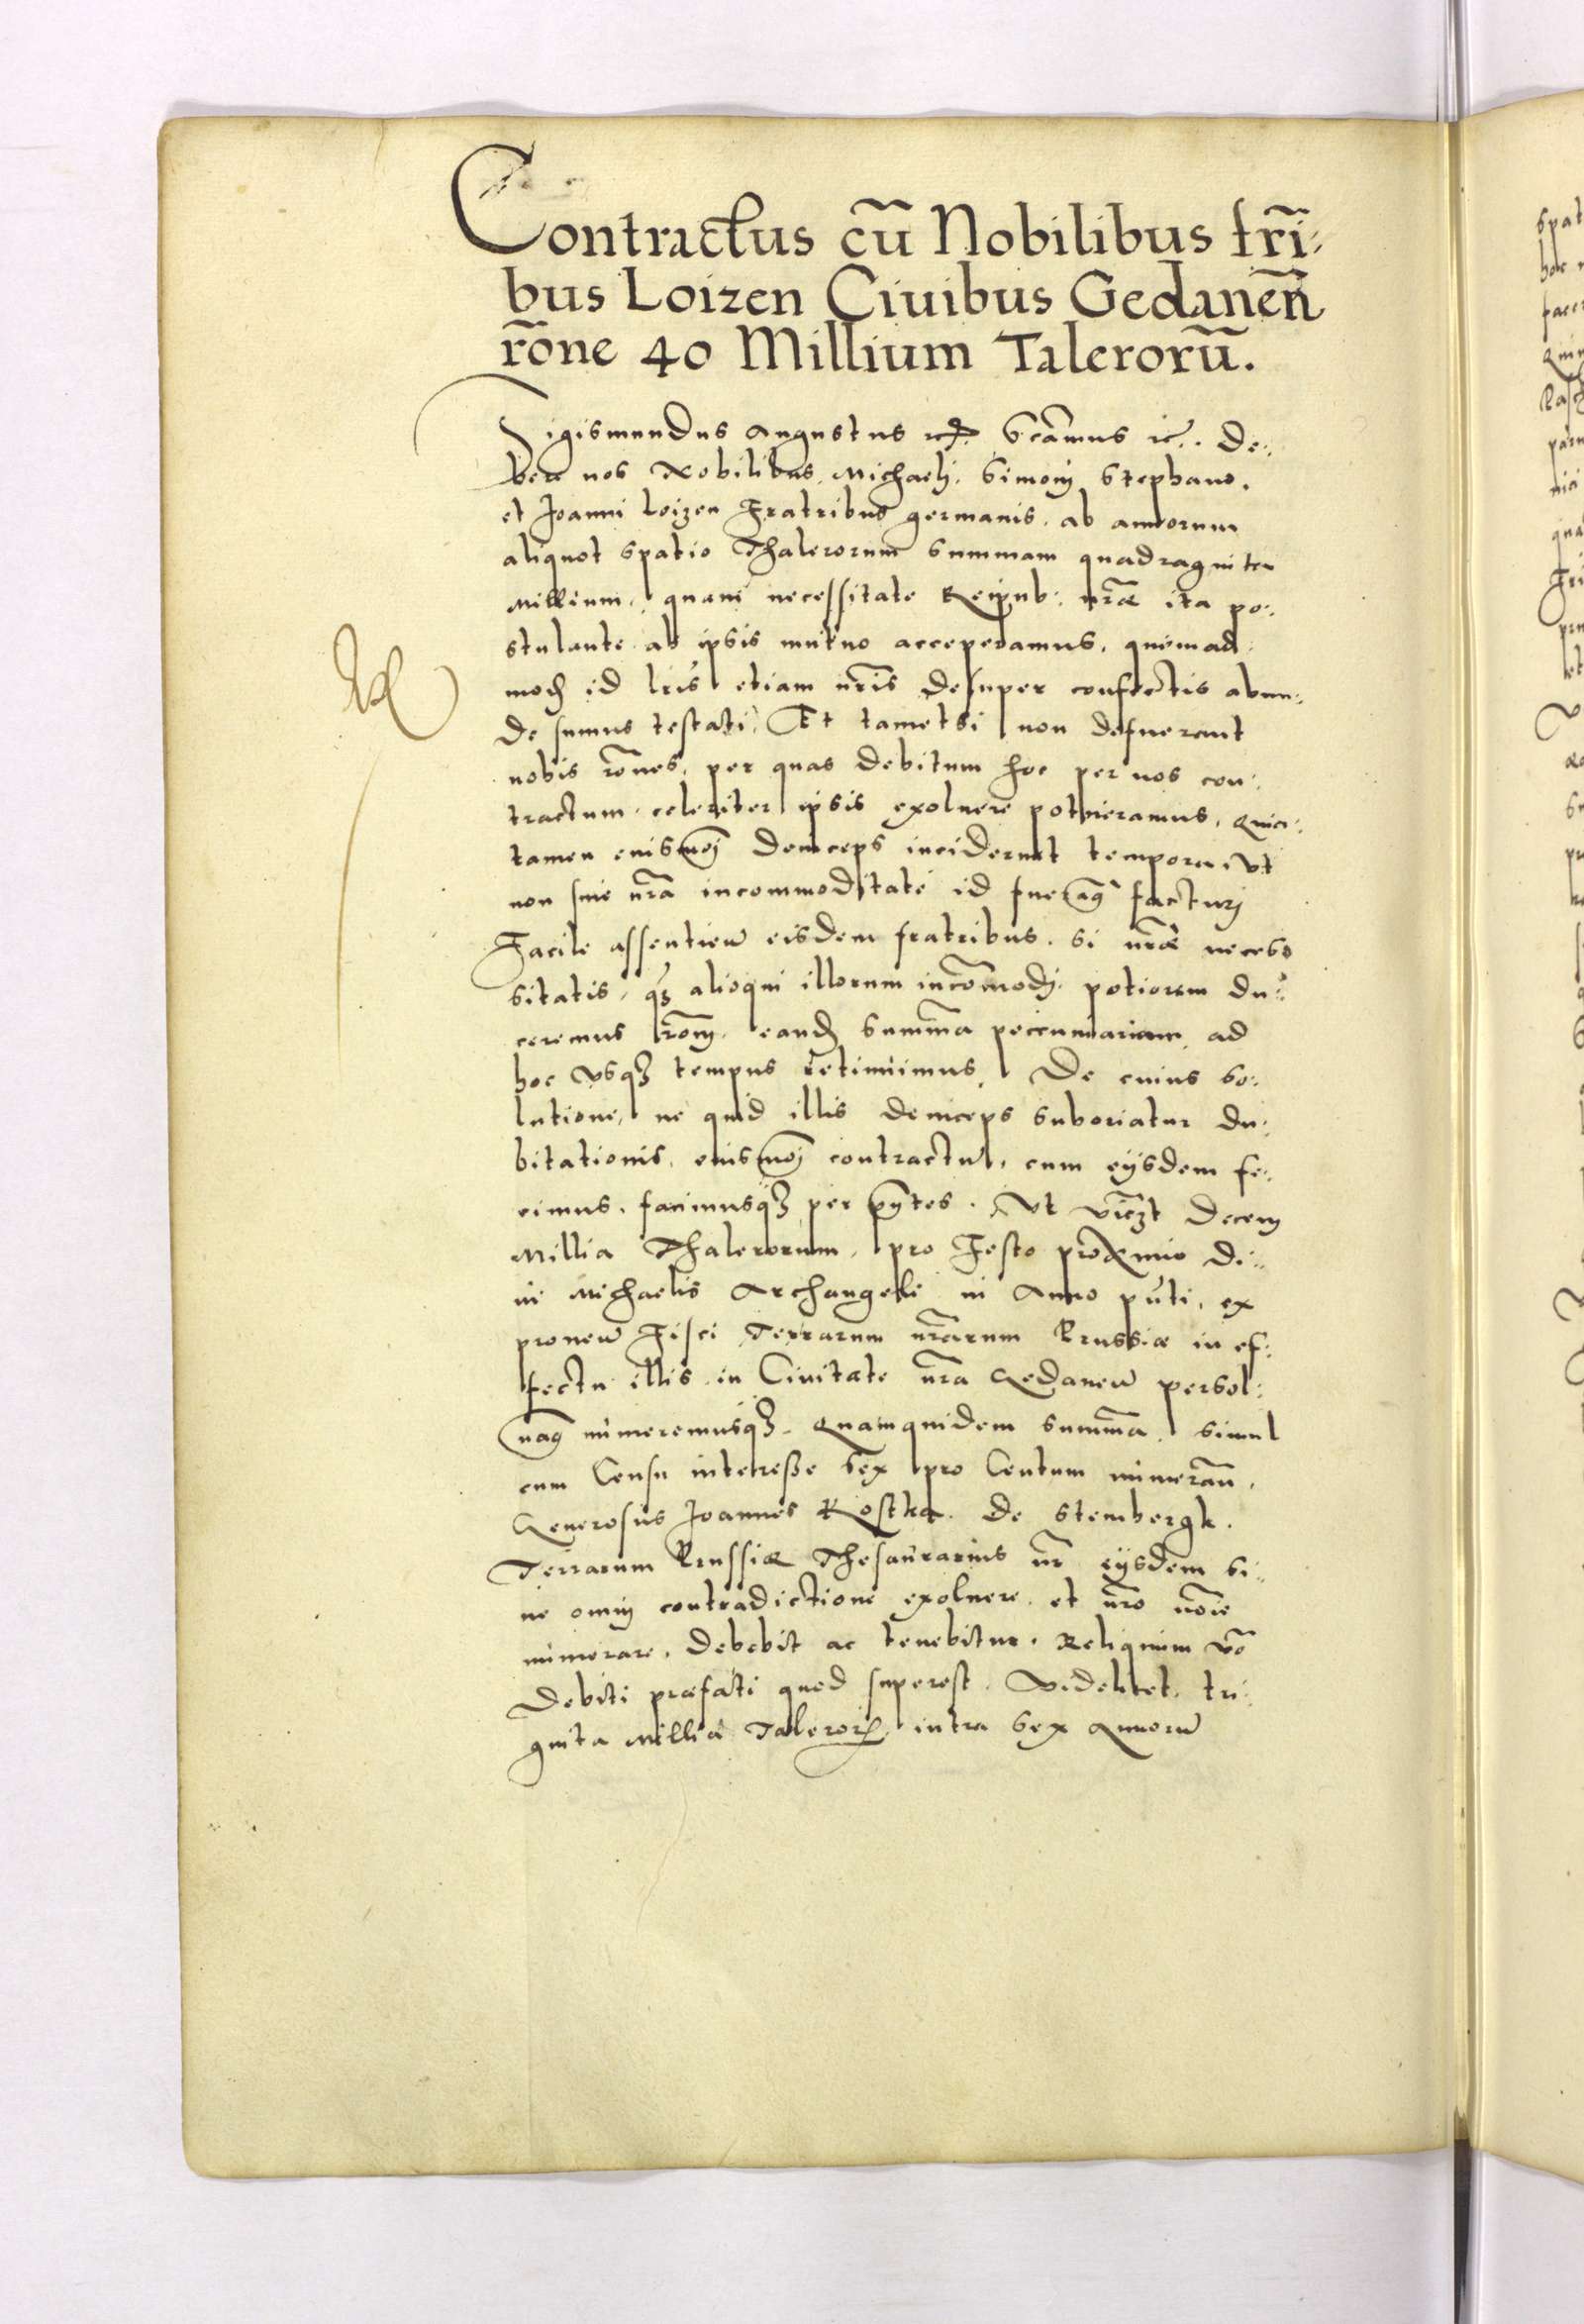 Contractus cū Nobilibus frī:
bus Loizen Ciuibus Gedaneñ
rõne 40 Millium Talerorũ.
Sigismundus Augustus rc. De:
bere nos Nobilibus, Michaeli, Simoni Stephano,
et Joanni Loizen Fratribus germanis, ab annorum
aliquot spatio Thalerorum summam quadraginta
Millium, quam necessitate Reipub: nrãe ita po:
stulante ab ipsis mutuo acceperamus, quemad:
mod id lris etiam nris desuper confectis abun:
de sumus testati, Et tametsi non defuerant
nobis rões, per quas debitum hoc per nos con:
tractum celeriter ipsis exoluere potuieramus, Quia
tamen eiusmõi deinceps inciderunt tempora, Vt
non sine nrã incommoditate id facturi
Facile assentien̄ eisdem fratribus, si nrãe neces
sitatis, qʒ alioqui illorum incõmodi potiorem du:
ceremus rõm, eand summã peccuniariam ad
hoc vsqʒ tempus retinuimus, De cuius so:
lutione, ne quid illis deinceps suboriatur du:
bitationis, eiusmõi contractũ, cum eijsdem fe:
cimus, facimusqʒ per pñtes. Vt vicʒt Decem
Millia Thalerorum, pro Festo proximo Di:
ui Michaelis Archangeli in Anno pñti, ex
prouen̄ Fisci Terrarum nrãrum Prussiæ in ef:
fectu illis in Ciuitate nrã Gedanen̄ persol:
numeremusqʒ. Quamquidem summã, simul
cum Censu interesse sex pro Centum numerañ,
Generosus Joannes Kostka de Stembergk.
Terrarum Prussiæ Thesaurarius nr̃ eijsdem si:
ne omni contradictione exoluere et nr̃o nõie
numerare, debebit ac tenebitur. Reliquum võ
Debiti præfati quod superest. Videlicet, tri:
ginta Millia Taleror intra sex Annorũ